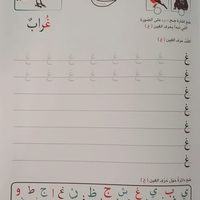 ضع إشارة صح على الصورة
التي تبدأ بحرف الغين ( غ )
غُرابٌ
أكتب حرف الغين ( غ )
غ غ غ غ غ غ غ
غ غ غ غ غ غ غ
غ
غ
غ
غ
غ
ضع دائرة حول حرف الغين ( غ )
ي ب ي غ س ج ظ ن غ ا ج ط و